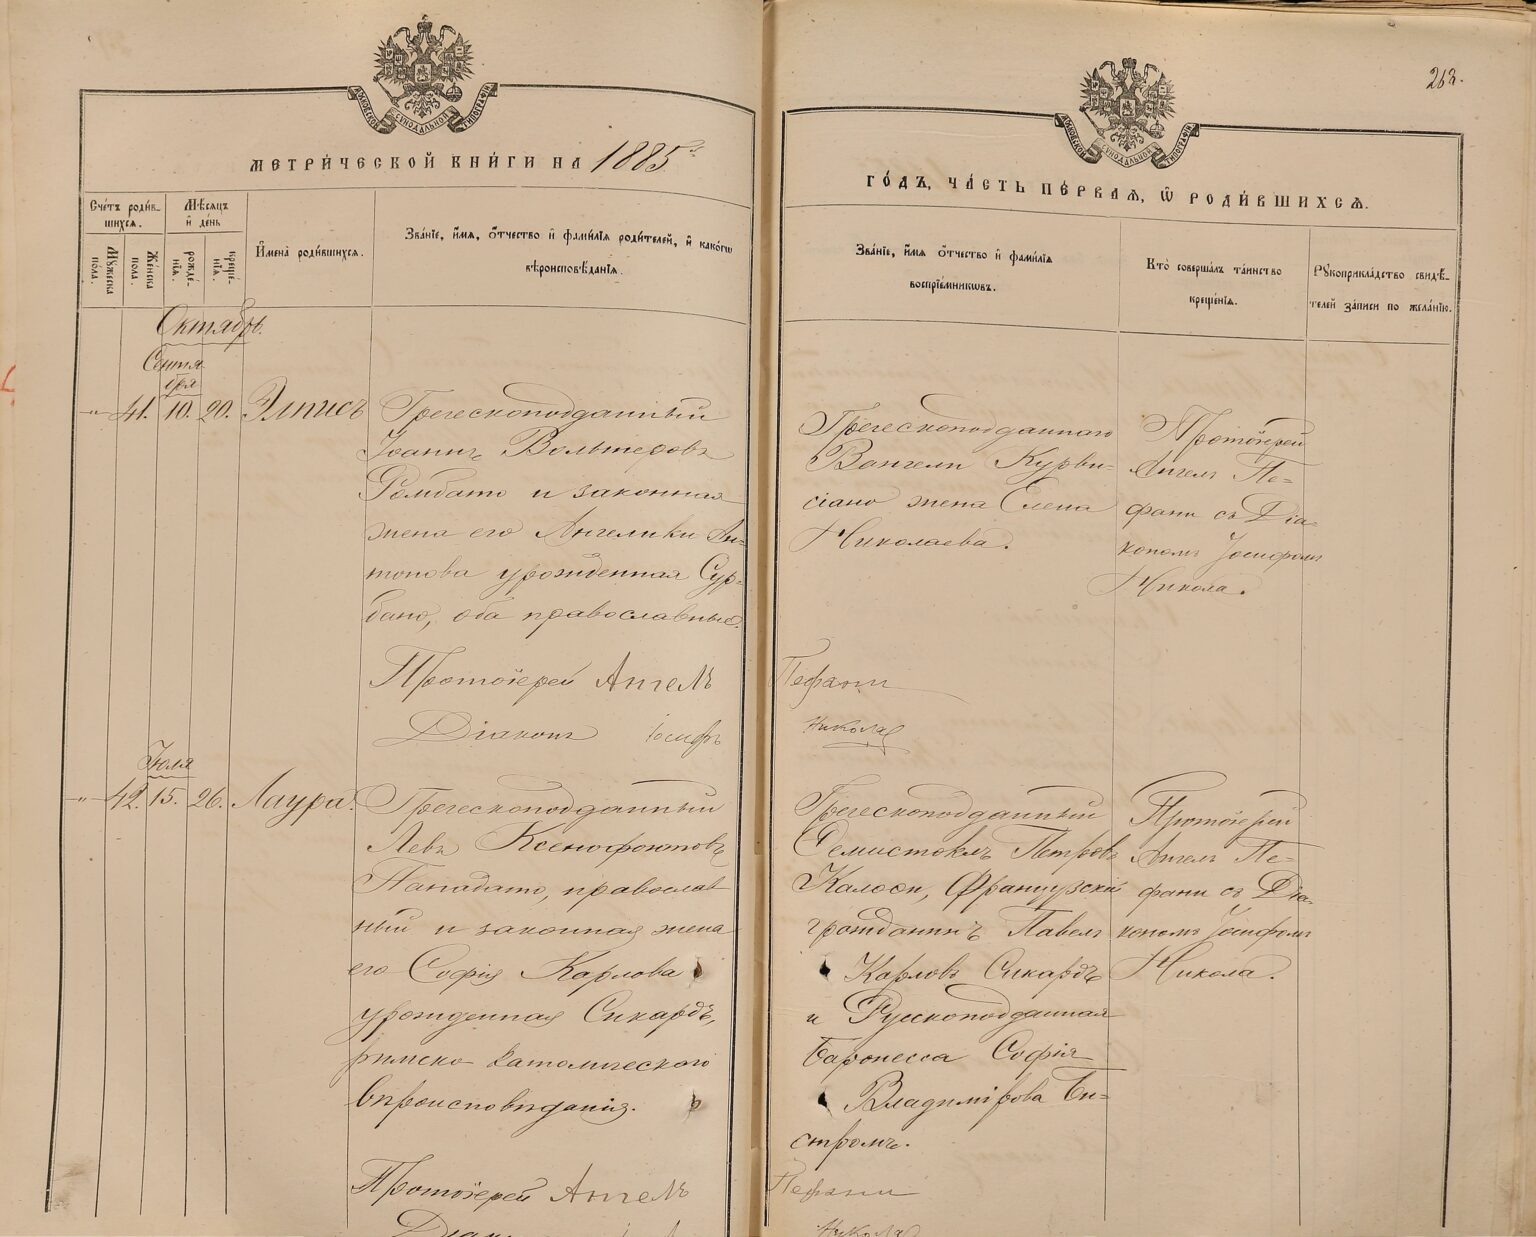 263.
МОСКОВСКОЙ СУНОДАЛЬНОЙ ТИПОГРАФІИ
МОСКОВСКОЙ СУНОДАЛЬНОЙ ТИПОГРАФІИ
МЕТРИ́ЧЕСКОЙ КНИ́ГИ НА 1885
ГО́ДЪ, ЧА́СТЬ ПЕ́РВАѦ, Ѡ҆ РОДИ́ВШИХСѦ.
Сче́тъ роди́в-
шихсѧ.
Мꙋ́жеска по́ла.
Же́нска по́ла.
Мѣ́сѧцъ
и҆ де́нь
рожде́-
нїѧ.
креще́-
нїѧ.
И҆мена̀ роди́вшихсѧ.
Зва́нїе, и҆́мѧ, ѻ҆́тчество и҆ фами́лїѧ роди́телей, и҆ како́гѡ
вѣроисповѣ́данїѧ.
Зва́нїе, и҆́мѧ, ѻ҆́тчество и҆ фами́лїѧ
воспрїе́мникѡвъ.
Кто̀ соверша́лъ та́инство
креще́нїѧ.
Рꙋкоприкла́дство свидѣ́-
телей за́писи по жела́нїю.
Октябрь.
Сентя
бря
-"- 41. 10. 20. Элписъ
Греческоподданный
Іоаннъ Вальтеровъ
Ромбато и законная
жена его Ангелики Ан-
тонова урожденная Сур-
бано, оба православные.
Протоіерей Ангелъ
Діаконъ Іосифъ
Греческоподданнаго
Вангели Курви-
сіано жена Елена
Николаева.
Протоіерей
Ангелъ Пе-
фани съ Діа-
кономъ Іосифомъ
Никола.
Пефани
Никола
Іюля
-"- 42. 15. 26. Лаура.
Греческоподданный
Левъ Ксенофонтовъ
Пападато, православ
ный и законная жена
его Софія Карлова
урожденная Сикардъ,
римско-католическаго
вѣроисповѣданія.
Протоіерей Ангелъ
Діак
Греческоподданный
Ѳемистоклъ Петровъ
Калоси, Французскій
гражданинъ Павелъ
Карловъ Сикардъ
и Русскоподданная
Баронесса Софія
Владимірова Би-
стромъ.
Протоіерей
Ангелъ Пе-
фани съ Діа-
кономъ Іосифомъ
Никола.
Пефани
Никола